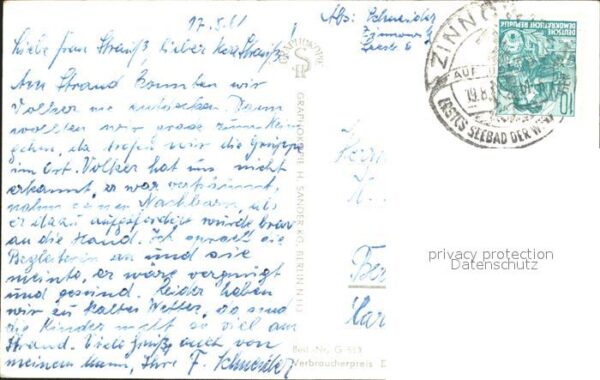 17.8.61
Liebe Frau Strauß, lieber Herr Strauß!
Am Strand konnten wir
Volker nie entdecken. Dann
wollten wir grade zum Kino
gehen, da trafen wir die Gruppe
im Ort. Volker hat uns nicht
erkannt, er war verträumt,
nahm seinen Nachbarn, als
er dazu aufgefordert wurde brav
an die Hand. Ich sprach die
Begleiterin an und sie
meinte, er wäre vergnügt
und gesund. Leider haben
wir zu kaltes Wetter, da sind
die Kinder nicht so viel am
Strand. Viele Grüße, auch von
meinem Mann, Ihre F. Schneider
Abs: Schneider
Zinnowitz
GRAPHOKOPIE
GRAPHOKOPIE H. SANDER KG, BERLIN N 113
Best.-Nr. G
Verbraucherpreis
ZINNO
19.8.
ERSTES SEEBAD DER
DEUTSCHE
DEMOKRATISCHE REPUBLIK
10
privacy protection
Datenschutz